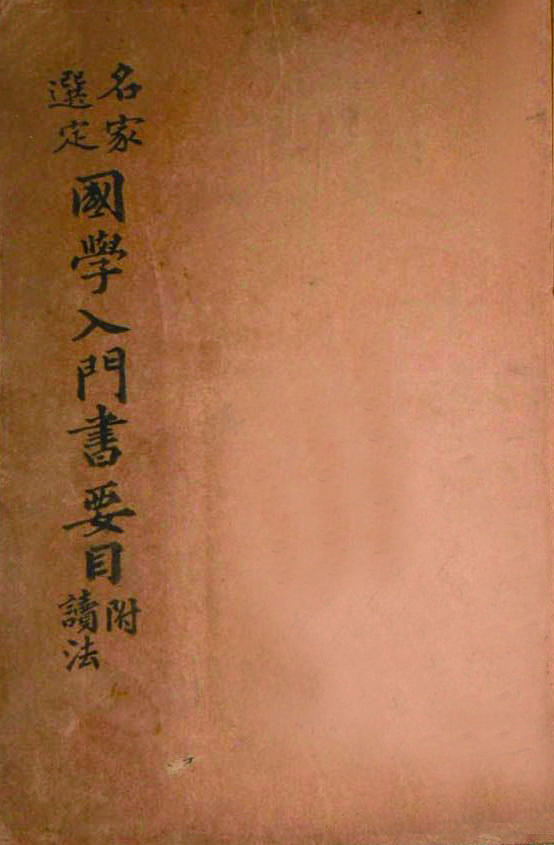 名家
選定
國學入門書要目
附
讀法